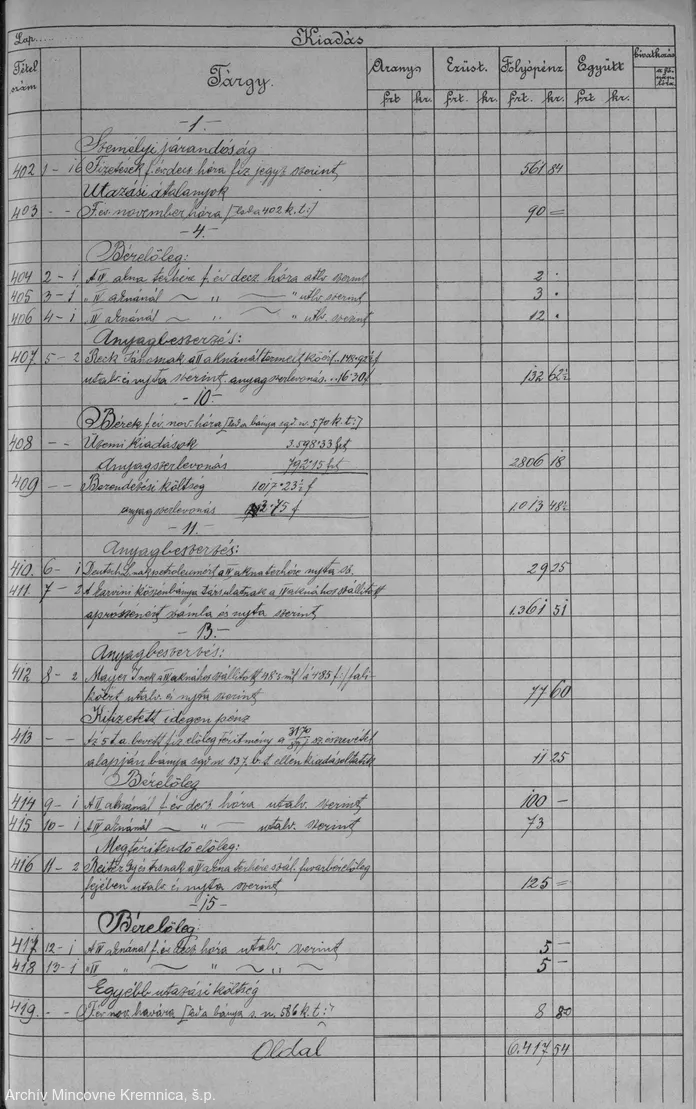 Lap..... Kiadás
Tétel szám Tárgy. Arany Ezüst. Folyópénz Együtt hivatkozás
frt kr. frt. kr. frt. kr. frt. kr.
-1.-
Személyi járandóság
402 1-16 Fizetések f. évi decz. hóra fiz. jegyz. szerint 561 84
Utazási átalanyok
403 - - F. év november hóra 402 k. t:/ 90 =
-4.-
Bérelőleg:
404 2-1 A II akna terhére f. év decz. hóra utlv. szerint 2 .
405 3-1 " IV aknánál ~ " ~ " utlv. szerint 3 .
406 4-1 aknánál ~ " ~ utlv. szerint 12 .
Anyagbeszerzés:
407 5-2 Reck Jánosnak a II aknánál termelt kőért
utalv. és nyjta szerint. anyagszerlevonás .. 16·30 f 132 62½
-10.-
Bérek f. év. nov. hóra bánya sgd. n. 570 k. t:/
408 - - Üzemi kiadások 3.598·33 frt
Anyagszerlevonás 792·15 frt 2806 18
409 - - Berendezési költség 1017·23½ f
anyagszerlevonás 3·75 f 1.013 48½
-11.-
Anyagbeszerzés:
410. 6-1 Deutsch L.nak petroleumért a II akna terhére nyjta sz. 29 25
411. 7-2 A karvini kőszénbánya Társulatnak a IV aknához szállított
aprószénért számla és nyjta szerint 1.361 51
-13.-
Anyagbeszerzés:
412 8-2 Mayer a II aknához szállított /á 4·85 f:/ fali-
kőért utalv. és nyjta szerint 77 60
Kifizetett idegen pénz
413 - - bevett fiz. előleg térítmény a 3170/
alapján bánya sgd. n. 137. ellenkiadásoltatik 11 25
Bérelőleg
414 9-1 A II aknánál f. év decz. hóra utalv. szerint 100 -
415 10-1 A IV aknánál ~ " ~ utalv. szerint 73
Megtérítendő előleg:
416 11-2 Reiter a II akna terhére száll. fuvarbérelőleg
fejében utalv. és nyjta szerint 125 =
-15-
Bérelőleg:
417 12-1 A II aknánál f. év decz. hóra utalv. szerint 5 -
418 13-1 " IV " ~ " ~ " ~ 5 -
Egyébb utazási költség
419 - - F. év nov. havára bánya s. n. 586 k. t:/ 8 80
Oldal 6.417 54
Archív Mincovne Kremnica, š.p.